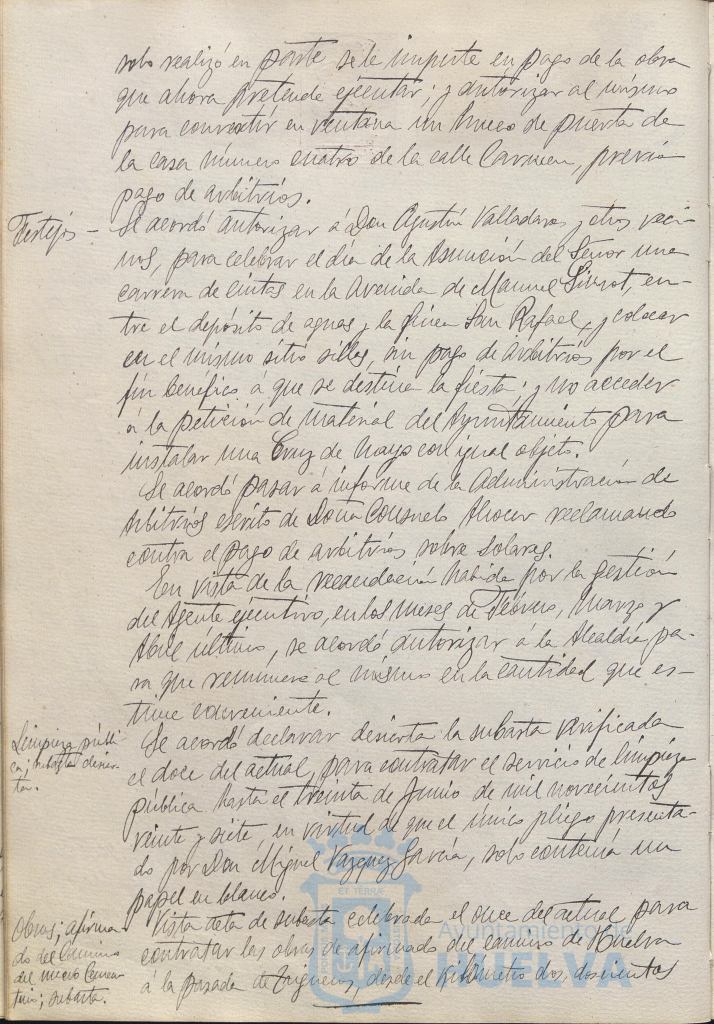 solo realizó en parte se le impute en pago de la obra
que ahora pretende ejecutar; y autorizar al mismo
para convertir en ventana un hueco de puerta de
la casa número cuatro de la calle Carmen, previo
pago de arbitrios.
Festejos –
Se acordó autorizar á Don Agustín Valladares y otros veci-
nos, para celebrar el día de la Asunción del Señor una
carrera de cintas en la Avenida de Manuel Siurot, en-
tre el depósito de aguas y la finca San Rafael, y colocar
en el mismo sitio sillas, sin pago de arbitrios por el
fin benéfico á que se destina la fiesta; y no acceder
á la petición de material del Ayuntamiento para
instalar una Cruz de Mayo con igual objeto.
Se acordó pasar á informe de la Administración de
Arbitrios escrito de Doña Consuelo Alvear reclamando
contra el pago de arbitrios sobre solares.
En vista de la recaudación habida por la gestión
del Agente ejecutivo, en los meses de Febrero, Marzo y
Abril último, se acordó autorizar á la Alcaldía pa-
ra que remunere al mismo en la cantidad que es-
time conveniente.
Limpieza públi-
ca; subasta desier-
ta.
Se acordó declarar desierta la subasta verificada
el doce del actual, para contratar el servicio de limpieza
pública hasta el treinta de Junio de mil novecientos
veinte y siete, en virtud de que el único pliego presenta-
do por Don Miguel Vazquez García, solo contenía un
papel en blanco.
Obras; afirma-
do del Camino
del nuevo Cemen-
terio; subasta.
Vista acta de subasta celebrada el once del actual para
contratar las obras de afirmado del camino de Huelva
á la pasada de Trigueros, desde el kilómetro dos, doscientos
Ayuntamiento de
HUELVA